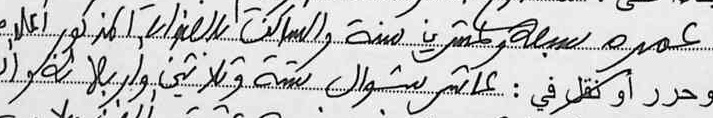 عمره سبعة وعشرين سنة والساكن بالعنوان المذكور أعلاه
وحرر أو نقل في : عاشر شوال ستة وثلاثين وأربعمائة وألف